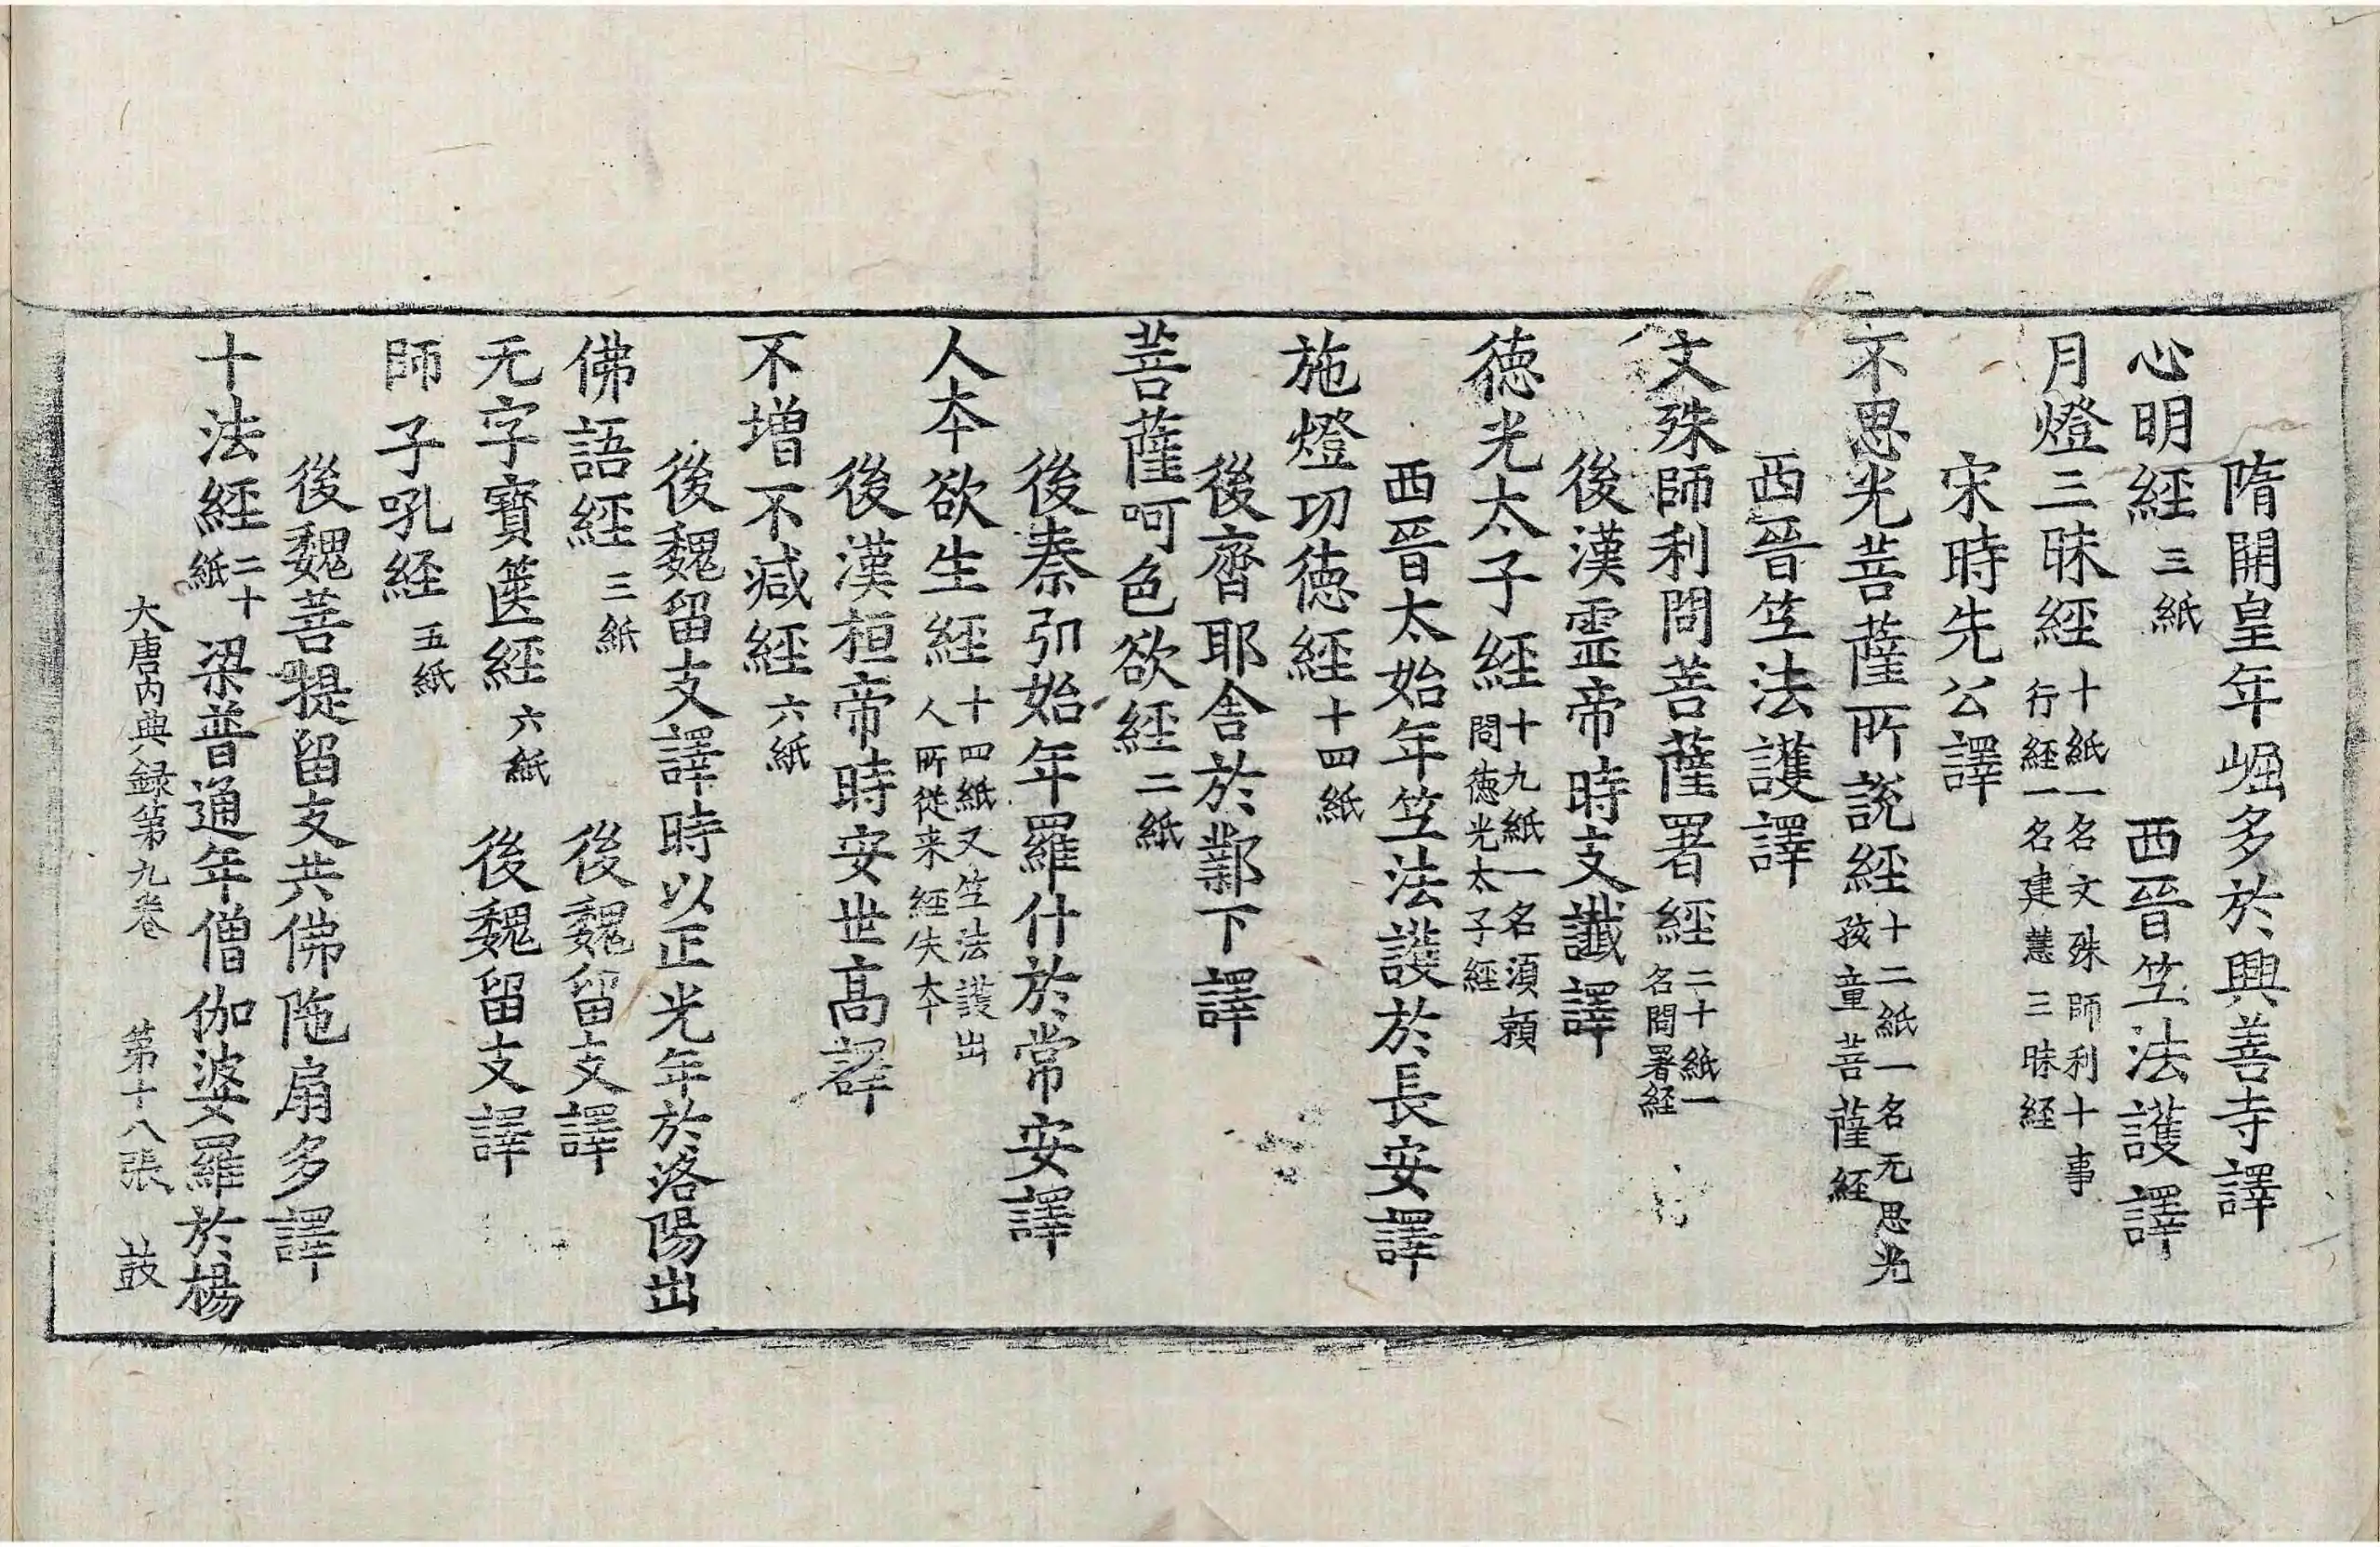 隋開皇年崛多於興善寺譯
心明經三紙 西晉竺法護譯
月燈三昧經十紙一名文殊師利十事行経一名建慧三昧経
宋時先公譯
不思光菩薩所說經十二紙一名无思光孩童菩薩経
西晉竺法護譯
文殊師利問菩薩署經二十紙一名問署経
後漢靈帝時支讖譯
徳光太子經十九紙一名須頼問徳光太子經
西晉太始年竺法護於長安譯
施燈功徳經十四紙
後齊耶舎於鄴下譯
菩薩呵色欲經二紙
後秦弘始年羅什於常安譯
人夲欲生經十四紙又竺法護出人所従来経失夲
後漢桓帝時安世髙譯
不増不减經六紙
後魏留支譯時以正光年於洛陽出
佛語經三紙 後魏留支譯
无字寶篋經六紙 後魏留支譯
師子吼経五紙
後魏菩提留支共佛陁扇多譯
十法經二十紙 梁普通年僧伽婆羅於楊
大唐内典録第九卷 第十八張 鼓